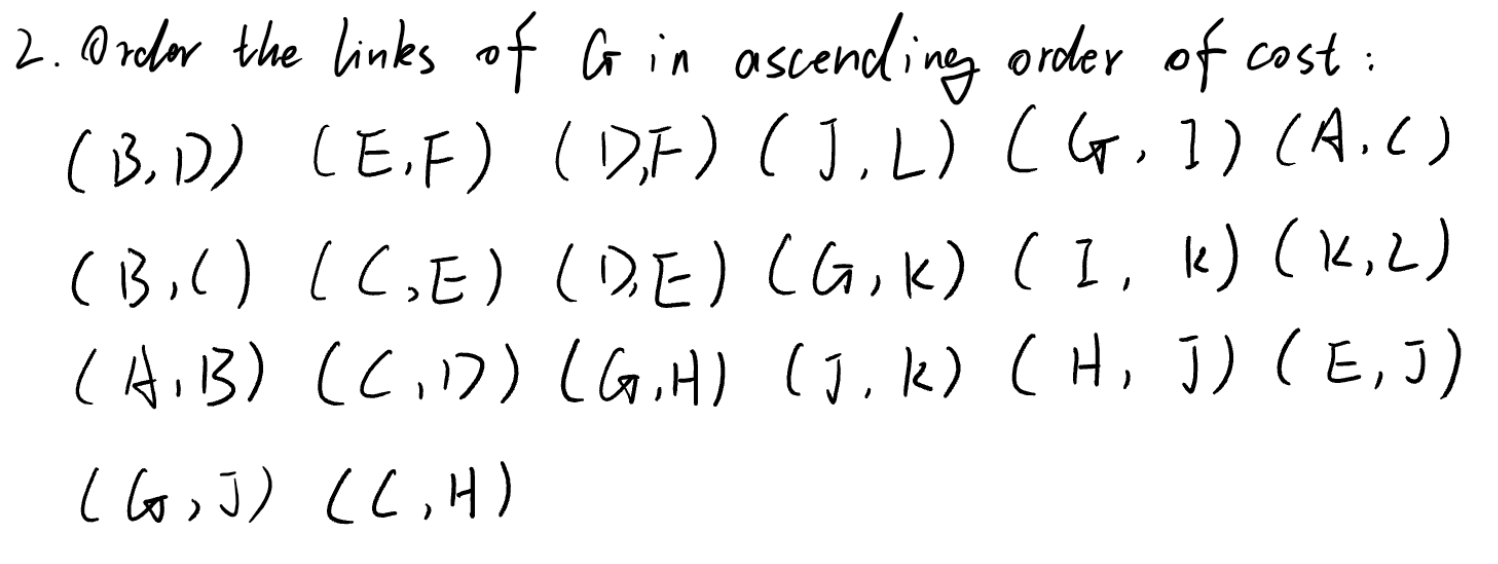 2. Order the links of G in ascending order of cost :
(B,D) (E,F) (D,F) (J,L) (G,I) (A,C)
(B,C) (C,E) (D,E) (G,K) (I,K) (K,L)
(A,B) (C,D) (G,H) (J,K) (H,J) (E,J)
(G,J) (C,H)